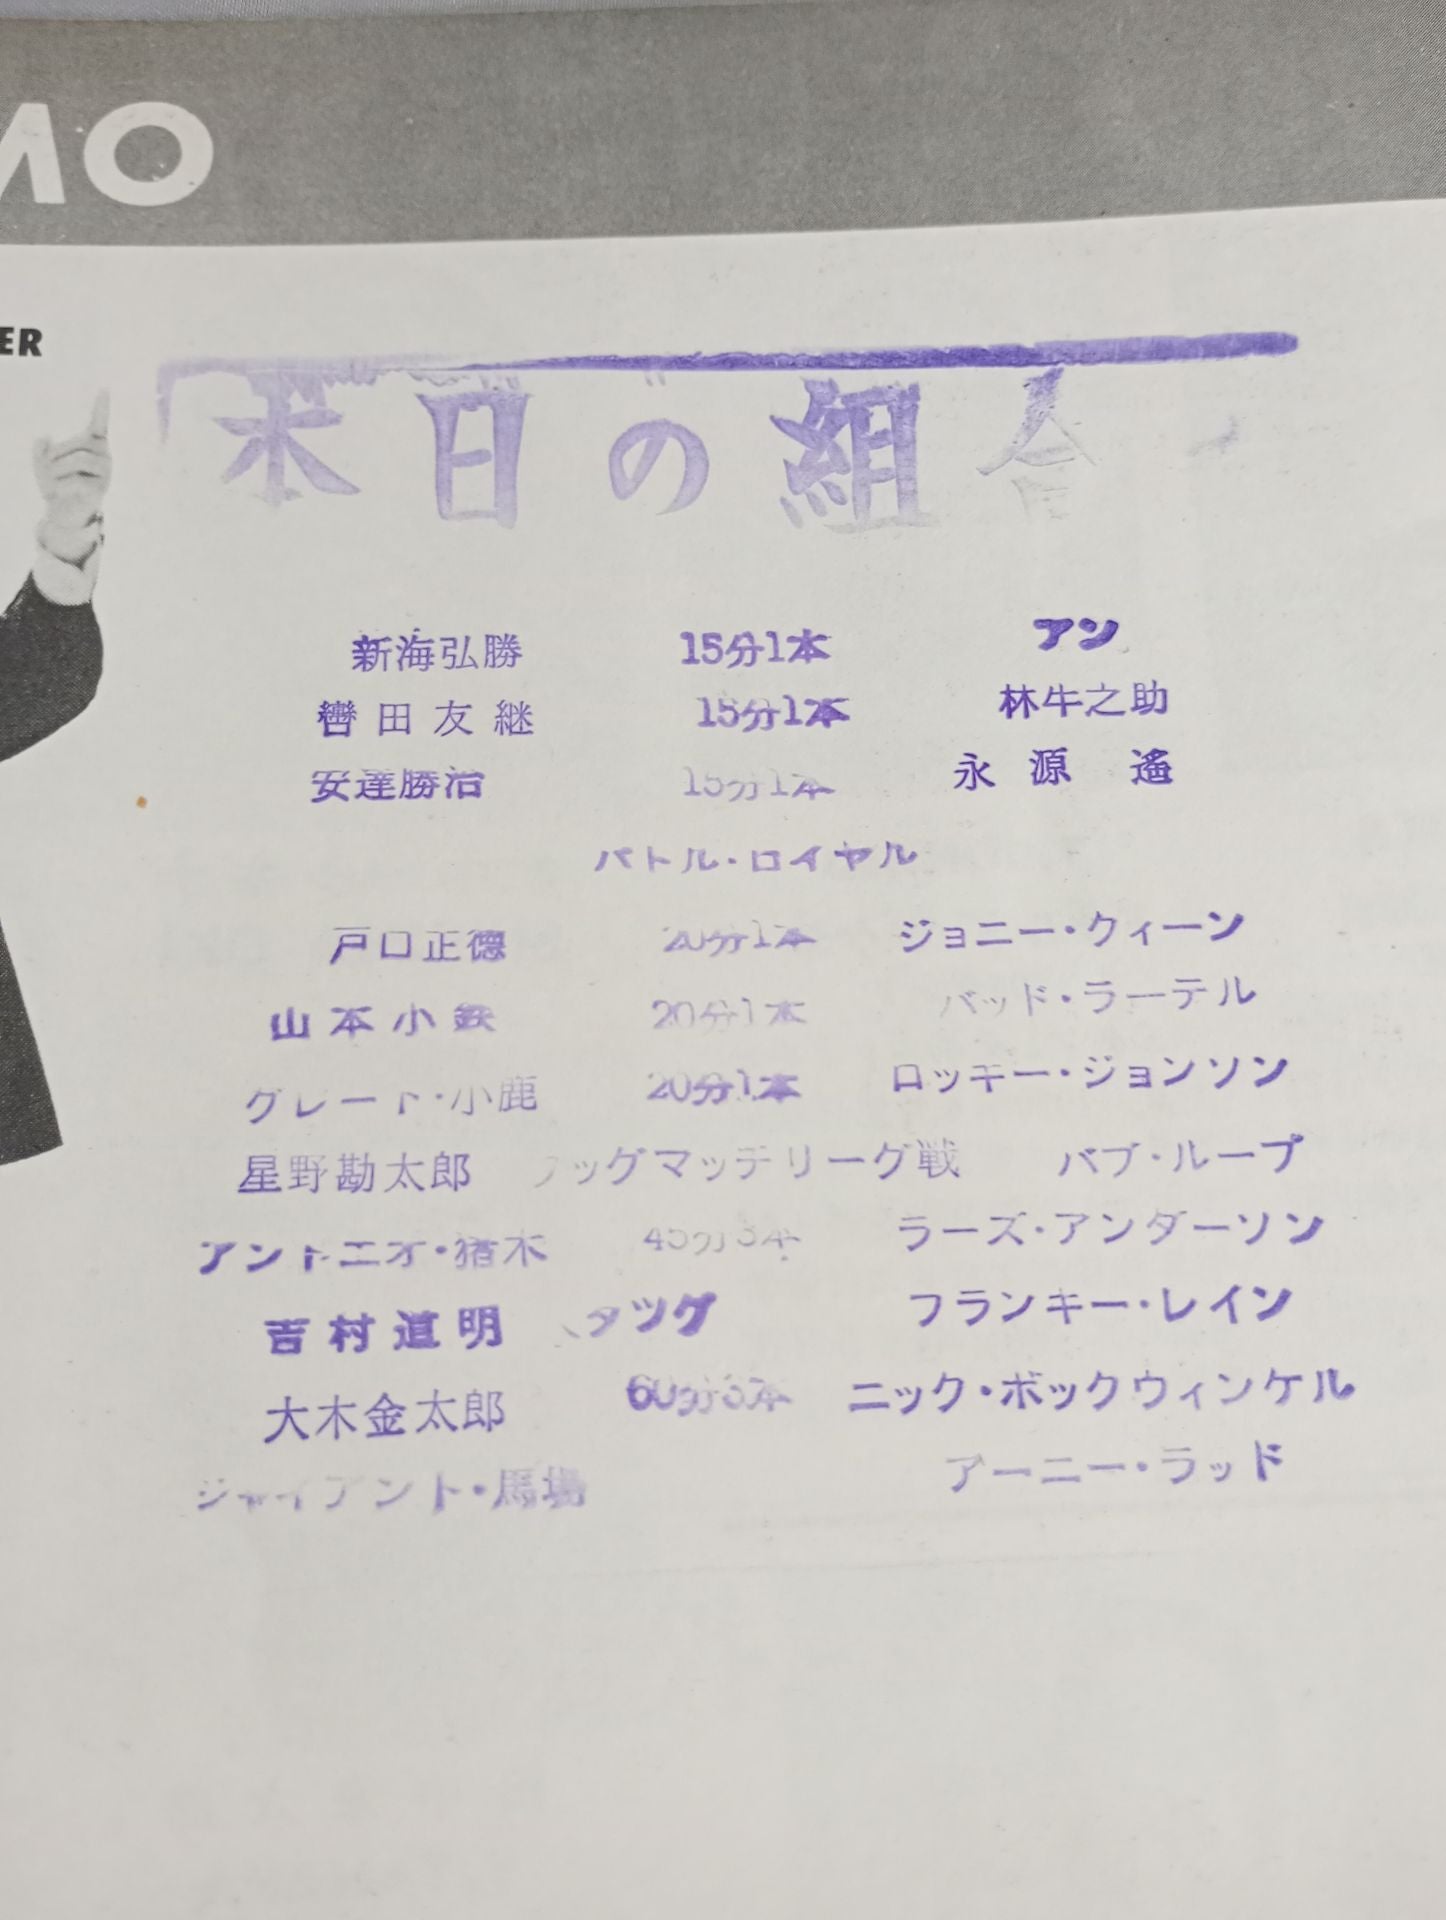 MO
ER
本日の組合
新海弘勝 15分1本 アン
轡田友継 15分1本 林牛之助
安達勝治 15分1本 永源 遙
バトル・ロイヤル
戸口正徳 20分1本 ジョニー・クィーン
山本小鉄 20分1本 バッド・ラーテル
グレート・小鹿 20分1本 ロッキー・ジョンソン
星野勘太郎 タッグマッチリーグ戦 バブ・ループ
アントニオ・猪木 45分3本 ラーズ・アンダーソン
吉村道明 タッグ フランキー・レイン
大木金太郎 60分3本 ニック・ボックウィンケル
ジャイアント・馬場 アーニー・ラッド